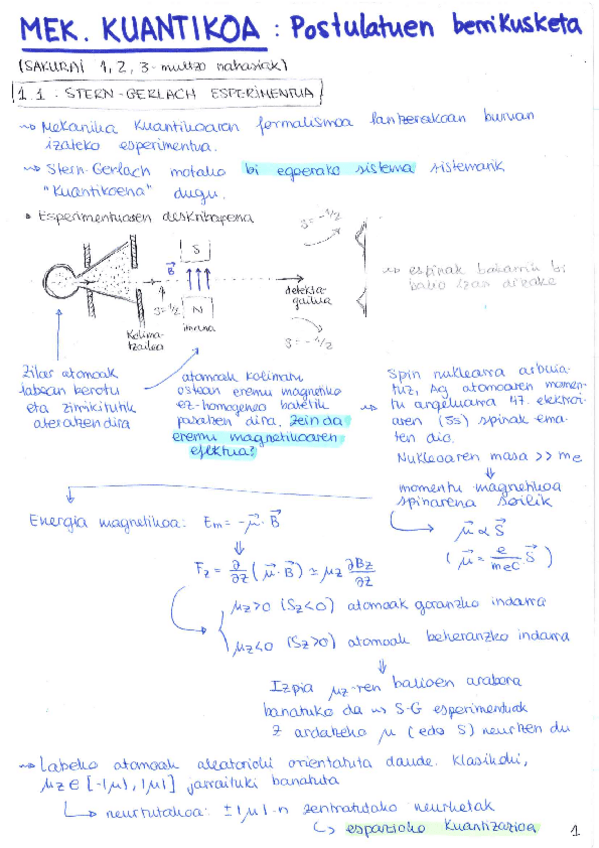 MEK. KUANTIKOA : Postulatuen berrikusketa
(SAKURAI 1, 2, 3 - multzo nahasiak)
1.1. STERN-GERLACH ESPERIMENTUA
⇝ Mekanika Kuantikoaren formalismoa lantzerakoan buruan
izateko esperimentua.
⇝ Stern-Gerlach motako bi egoerako sistema sistemarik
"Kuantikoena" dugu.
• Esperimentuaren deskribapena
S=-1/2
S
B
N
S=1/2
Kolima-
tzailea
imana
detekta-
gailua
S=-1/2
⇝ espinak bakarrik bi
balio izan ditzake
Zilar atomoak
labean berotu
eta zirrikitutik
ateratzen dira
atomoak kolimatu
ostean eremu magnetiko
ez-homogeneo batetik
pasatzen dira. Zein da
eremu magnetikoaren
efektua?
⇝ Spin nuklearra arbuia-
tuz, Ag atomoaren momen-
tu angeluarra 47. elektroi-
aren (5s) spinak ema-
ten dio.
Nukleoaren masa >> me
⇓
momentu magnetikoa
spinarena soilik
μ⃗ ∝ S⃗
( μ⃗ = e/mec S⃗ )
Energia magnetikoa: Em = -μ⃗ · B⃗
⇓
Fz = ∂/∂z (μ⃗ · B⃗) ≃ μz ∂Bz/∂z
μz>0 (Sz<0) atomoak goranzko indarra
μz<0 (Sz>0) atomoak beheranzko indarra
⇓
Izpia μz-ren balioen arabera
banatuko da ⇝ S-G esperimentuak
z ardatzeko μ (edo S) neurtzen du
⇝ Labeko atomoak aleatorioki orientatuta daude. Klasikoki,
μz ∈ [-|μ|, |μ|] jarraituki banatuta
↳ neurtutakoa: ±|μ|-n zentratutako neurketak
↳ espazioko Kuantizazioa
1